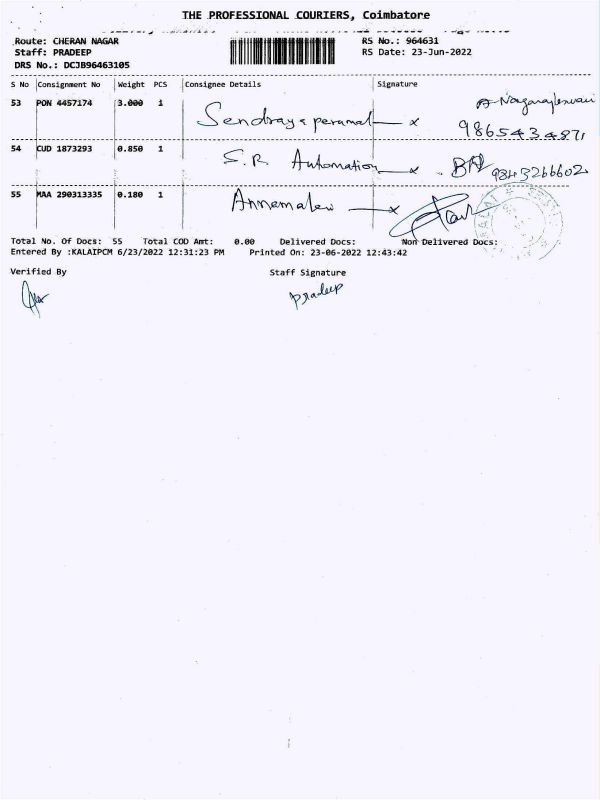 THE PROFESSIONAL COURIERS, Coimbatore
Route: CHERAN NAGAR RS No.: 964631
Staff: PRADEEP RS Date: 23-Jun-2022
DRS No.: DCJB96463105
S No Consignment No Weight PCS Consignee Details Signature
53 PON 4457174 3.000 1 Sendraya perumal x A Nagarajeswari
9865434871
54 CUD 1873293 0.850 1 S.R Automation x 9843266602
55 MAA 290313335 0.180 1 Annamalai x
Total No. Of Docs: 55 Total COD Amt: 0.00 Delivered Docs: Non Delivered Docs:
Entered By :KALAIPCM 6/23/2022 12:31:23 PM Printed On: 23-06-2022 12:43:42
Verified By Staff Signature
pradeep